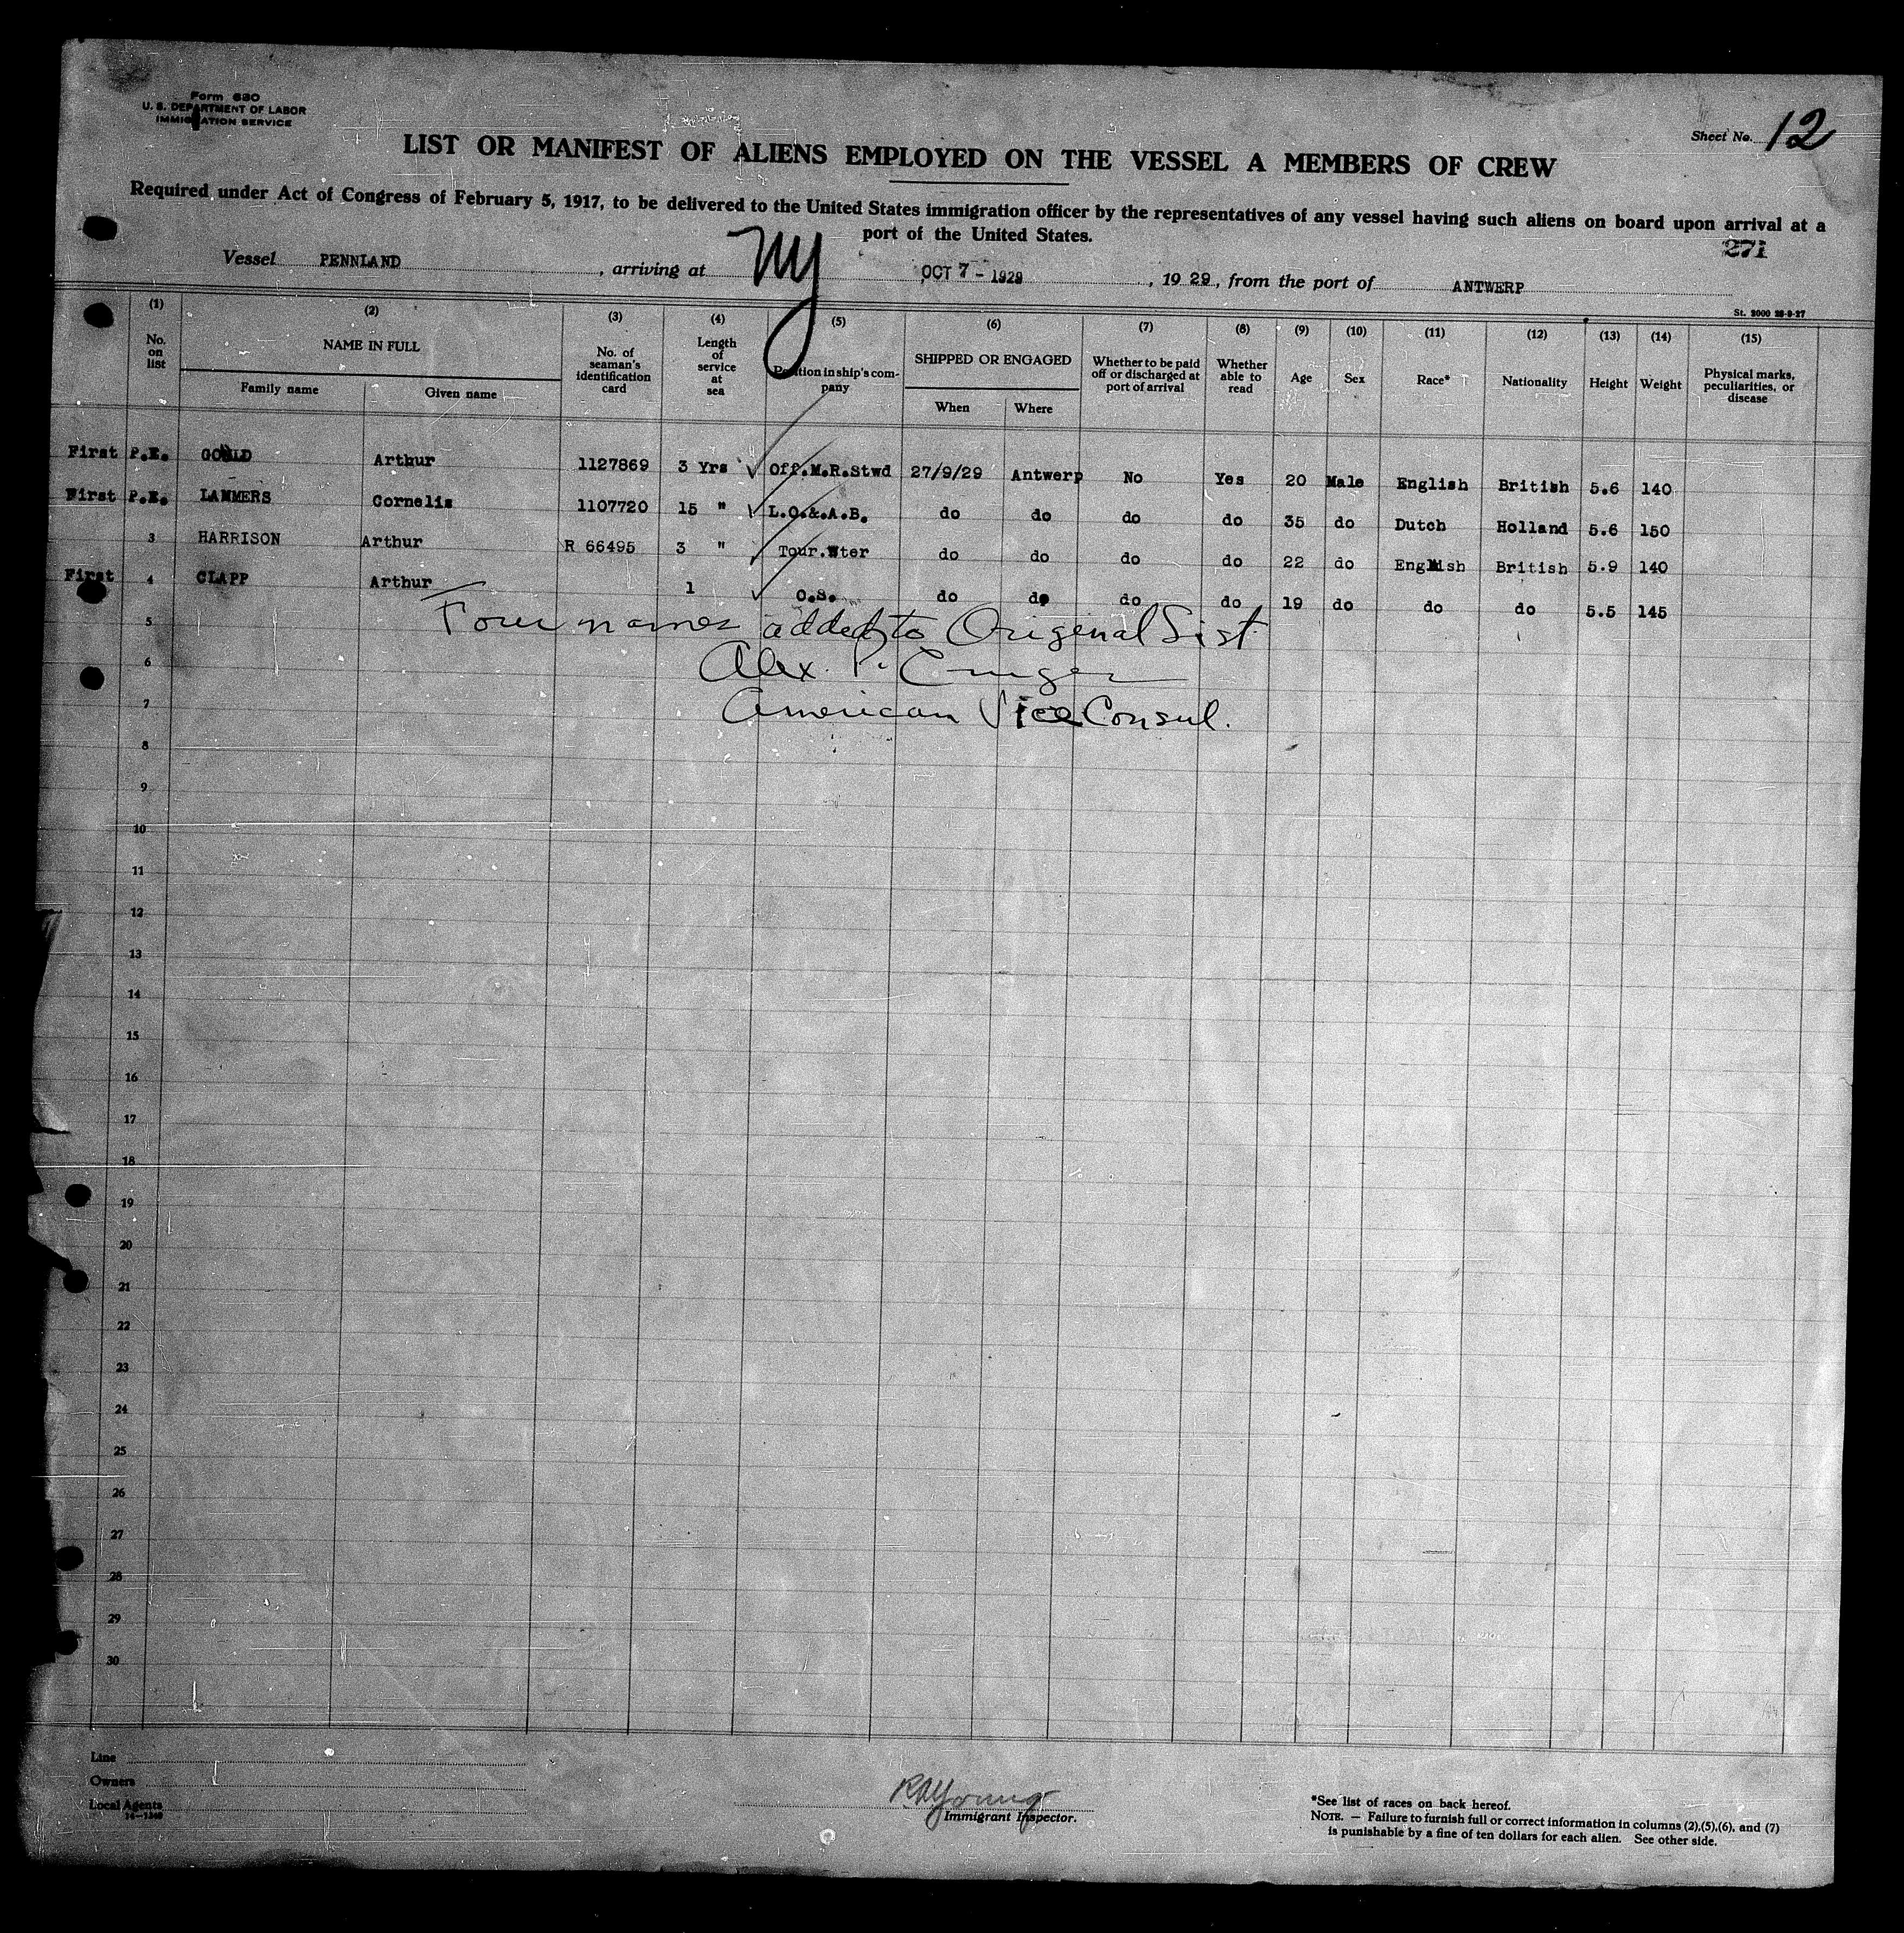 Form 680
U. S. DEPARTMENT OF LABOR
IMMIGRATION SERVICE
Sheet No. 12
LIST OR MANIFEST OF ALIENS EMPLOYED ON THE VESSEL A MEMBERS OF CREW
Required under Act of Congress of February 5, 1917, to be delivered to the United States immigration officer by the representatives of any vessel having such aliens on board upon arrival at a
port of the United States.
271
Vessel PENNLAND, arriving at NY OCT 7 - 1929, 19 29, from the port of ANTWERP
St. 2000 28-9-27
(1) (2) (3) (4) (5) (6) (7) (8) (9) (10) (11) (12) (13) (14) (15)
No. on list NAME IN FULL Family name Given name No. of seaman's identification card Length of service at sea Position in ship's company SHIPPED OR ENGAGED When Where Whether to be paid off or discharged at port of arrival Whether able to read Age Sex Race* Nationality Height Weight Physical marks, peculiarities, or disease
First P.E. GOULD Arthur 1127869 3 Yrs Off.M.R.Stwd 27/9/29 Antwerp No Yes 20 Male English British 5.6 140
First P.E. LAMMERS Cornelis 1107720 15 " L.O.&.A.B. do do do do 35 do Dutch Holland 5.6 150
3 HARRISON Arthur R 66495 3 " Tour.Wter do do do do 22 do English British 5.9 140
First 4 CLAPP Arthur 1 O.S. do do do do 19 do do do 5.5 145
5
Four names added to Original List
6
Alex. P.
7
American Vice Consul.
8
9
10
11
12
13
14
15
16
17
18
19
20
21
22
23
24
25
26
27
28
29
30
Line
Owners
Local Agents
14—1240
Young
Immigrant Inspector.
*See list of races on back hereof.
NOTE. — Failure to furnish full or correct information in columns (2),(5),(6), and (7)
is punishable by a fine of ten dollars for each alien. See other side.